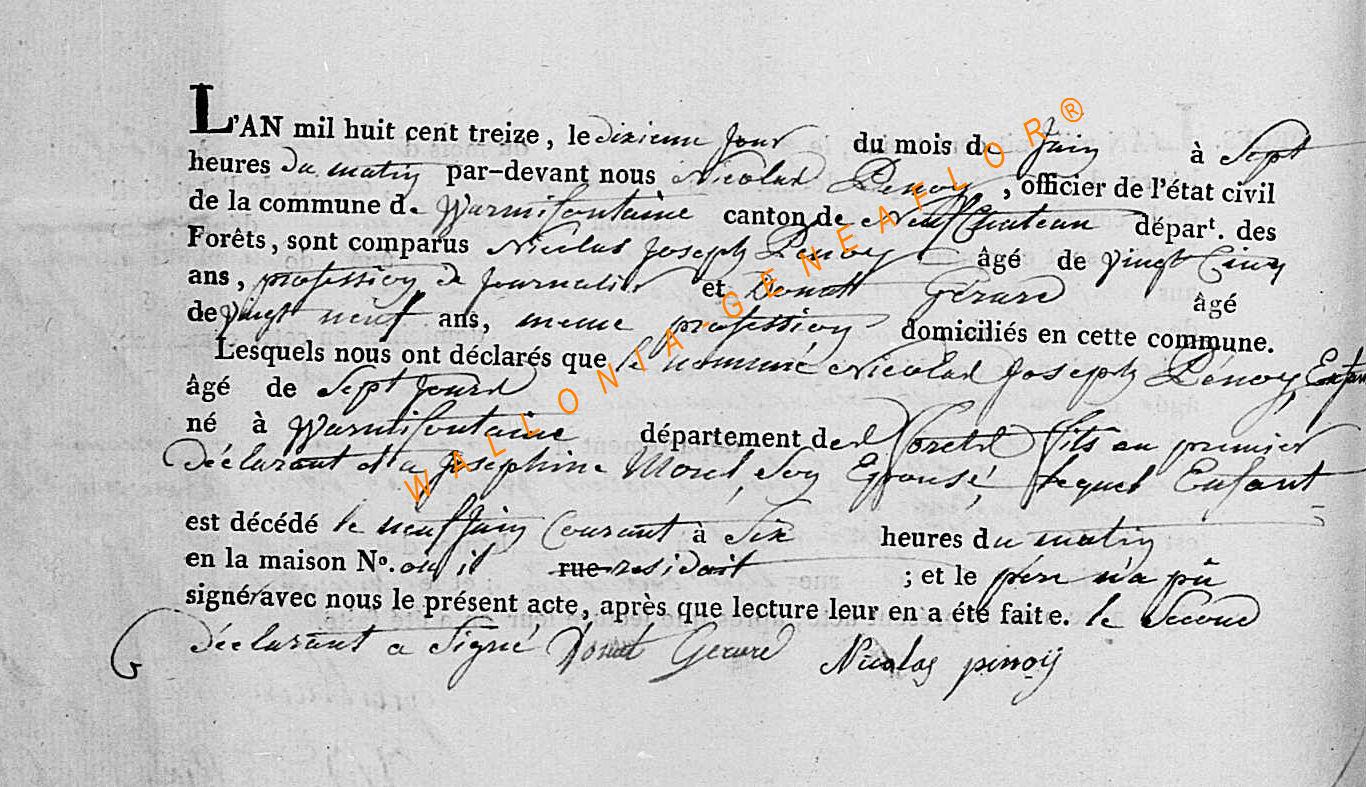 L'AN mil huit cent treize, le dixieme jour du mois de Juin à Sept
heures du matin par-devant nous Nicolas Penoy, officier de l'état civil
de la commune de Warmifontaine canton de Neufchateau départ. des
Forêts, sont comparus Nicolas Joseph Penoy âgé de vingt Cinq
ans, profession de Journalier et Donat Gérard âgé
de vingt neuf ans, meme profession domiciliés en cette commune.
Lesquels nous ont déclarés que le nommé Nicolas Joseph Pénoy, Enfant
âgé de Sept Jours
né à Warmifontaine département des Forets fils au premier
déclarant et a Josephine Morel, Soy Epouse, lequel Enfant
est décédé le neuf Juin Courant à Six heures du matin
en la maison No. ou il rue residait ; et le père n'a pû
signé avec nous le présent acte, après que lecture leur en a été faite. le Second
déclarant a Signé Donat Gerard Nicolas pinoÿ
WALLONIA-GENEAFLOR®